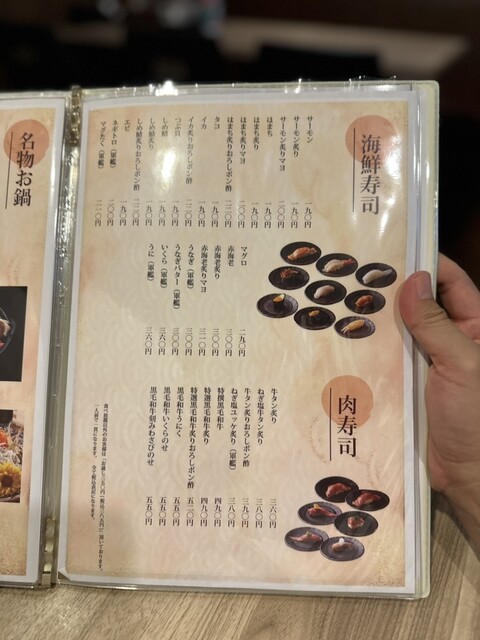 海鮮寿司
サーモン 一九〇円
サーモン炙り 一九〇円
サーモン炙りマヨ 二〇〇円
はまち 一九〇円
はまち炙り 一九〇円
はまち炙りマヨ 二〇〇円
はまち炙りおろしポン酢 二二〇円
タコ 一九〇円
イカ 一九〇円
イカ炙りおろしポン酢 二二〇円
つぶ貝 一九〇円
しめ鯖 一九〇円
しめ鯖炙り 一九〇円
しめ鯖炙りおろしポン酢 二二〇円
エビ 一九〇円
ネギトロ（軍艦） 一九〇円
マグたく（軍艦） 二一〇円
マグロ 二九〇円
赤海老 三〇〇円
赤海老炙り 三〇〇円
赤海老炙りマヨ 三一〇円
うなぎ（軍艦） 三〇〇円
うなぎバター（軍艦） 三〇〇円
いくら（軍艦） 三六〇円
うに（軍艦） 三六〇円
肉寿司
牛タン炙り 三六〇円
ねぎ塩牛タン炙り 三八〇円
牛タン炙りおろしポン酢 三九〇円
ねぎ塩ユッケ炙り（軍艦） 三八〇円
特撰黒毛和牛 四九〇円
特選黒毛和牛炙り 四九〇円
特選黒毛和牛炙りおろしポン酢 五二〇円
黒毛和牛うにく 五五〇円
黒毛和牛いくらのせ 五五〇円
黒毛和牛刻みわさびのせ 五五〇円
食べ放題以外のお客様は「お通し三五〇円（税込三八五円）」頂いております。
名物お鍋